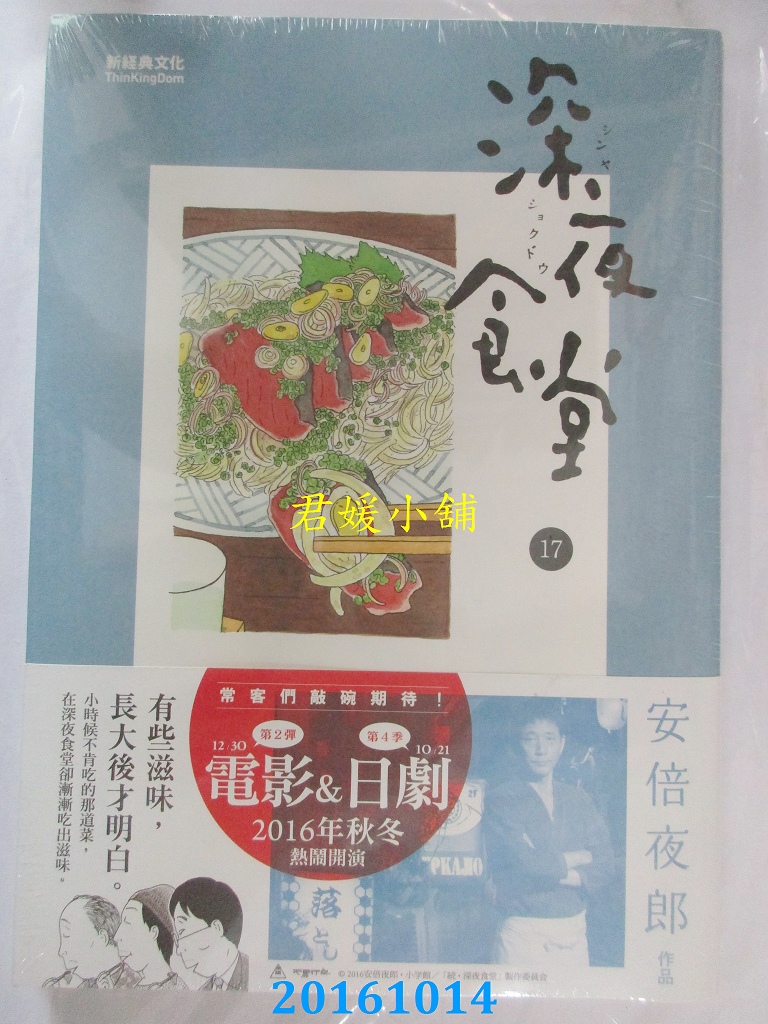 新經典文化
ThinKingDom
深夜食堂
シンヤ
ショクドウ
君媛小舖
17
常客們敲碗期待！
第2彈
第4季
12/30
10/21
電影&日劇
2016年秋冬
熱鬧開演
有些滋味，
長大後才明白。
小時候不肯吃的那道菜，
在深夜食堂卻漸漸吃出滋味。
安倍夜郎
作品
2F
落とし
© 2016安倍夜郎・小学館／「続・深夜食堂」製作委員会
20161014